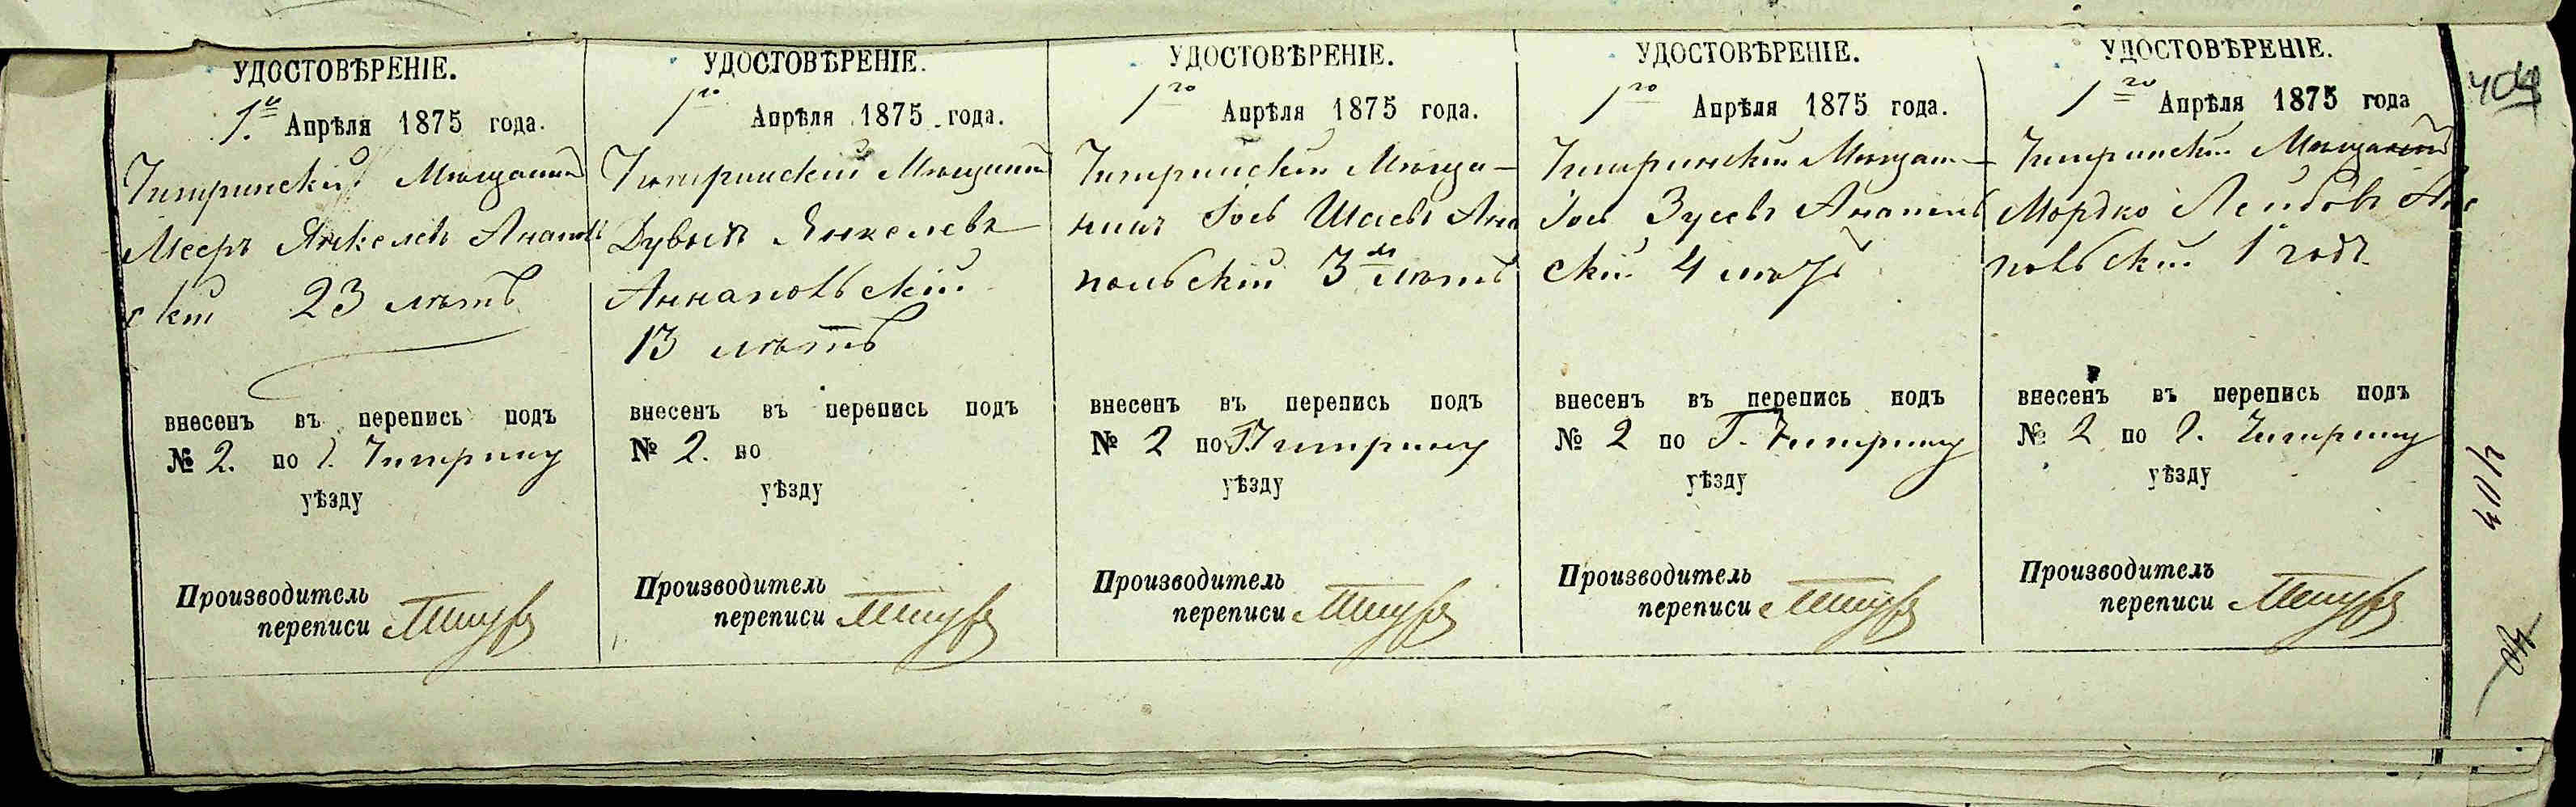 УДОСТОВѢРЕНІЕ.
1го Апрѣля 1875 года.
Чигиринскій Мѣщанинъ
Мееръ Янкелевъ Анаполь
скій 23 лѣтъ
внесенъ въ перепись подъ
№ 2. по г. Чигирину
уѣзду
Производитель
переписи
УДОСТОВѢРЕНІЕ.
1го Апрѣля 1875 года.
Чигиринскій Мѣщанинъ
Дувидъ Янкелевъ
Аннапольскій
13 лѣтъ
внесенъ въ перепись подъ
№ 2. по
уѣзду
Производитель
переписи
УДОСТОВѢРЕНІЕ.
1го Апрѣля 1875 года.
Чигиринскій Мѣща-
нинъ Іось Шаевъ Ана
польскій 3хъ лѣтъ
внесенъ въ перепись подъ
№ 2 по Г. Чигирину
уѣзду
Производитель
переписи
УДОСТОВѢРЕНІЕ.
1го Апрѣля 1875 года.
Чигиринскій Мѣщан-
Іось Зусевъ Анаполь
скій 4 лѣтъ
внесенъ въ перепись подъ
№ 2 по Г. Чигирину
уѣзду
Производитель
переписи
УДОСТОВѢРЕНІЕ.
1го Апрѣля 1875 года
Чигиринскій Мѣщанинъ
Мордко Лейбовъ Ана
польскій 1 годъ
внесенъ въ перепись подъ
№ 2 по г. Чигирину
уѣзду
Производитель
переписи
404